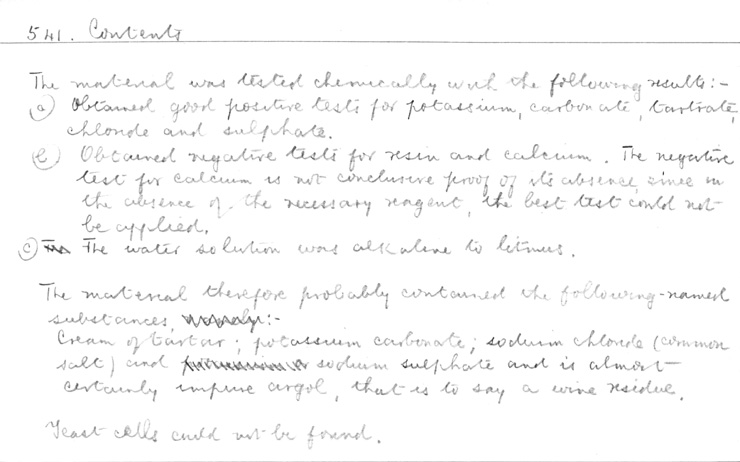 541. Contents
The material was tested chemically with the following results:-
(a) Obtained good positive tests for potassium, carbonate, tartrate,
chloride and sulphate.
(b) Obtained negative tests for resin and calcium. The negative
test for calcium is not conclusive proof of its absence, since in
the absence of the necessary reagent, the best test could not
be applied.
(c) The water solution was alkaline to litmus.
The material therefore probably contained the following-named
substances, namely:-
Cream of tartar; potassium carbonate; sodium chloride (common
salt) and sodium sulphate and is almost
certainly impure argol, that is to say a wine residue.
Yeast cells could not be found.